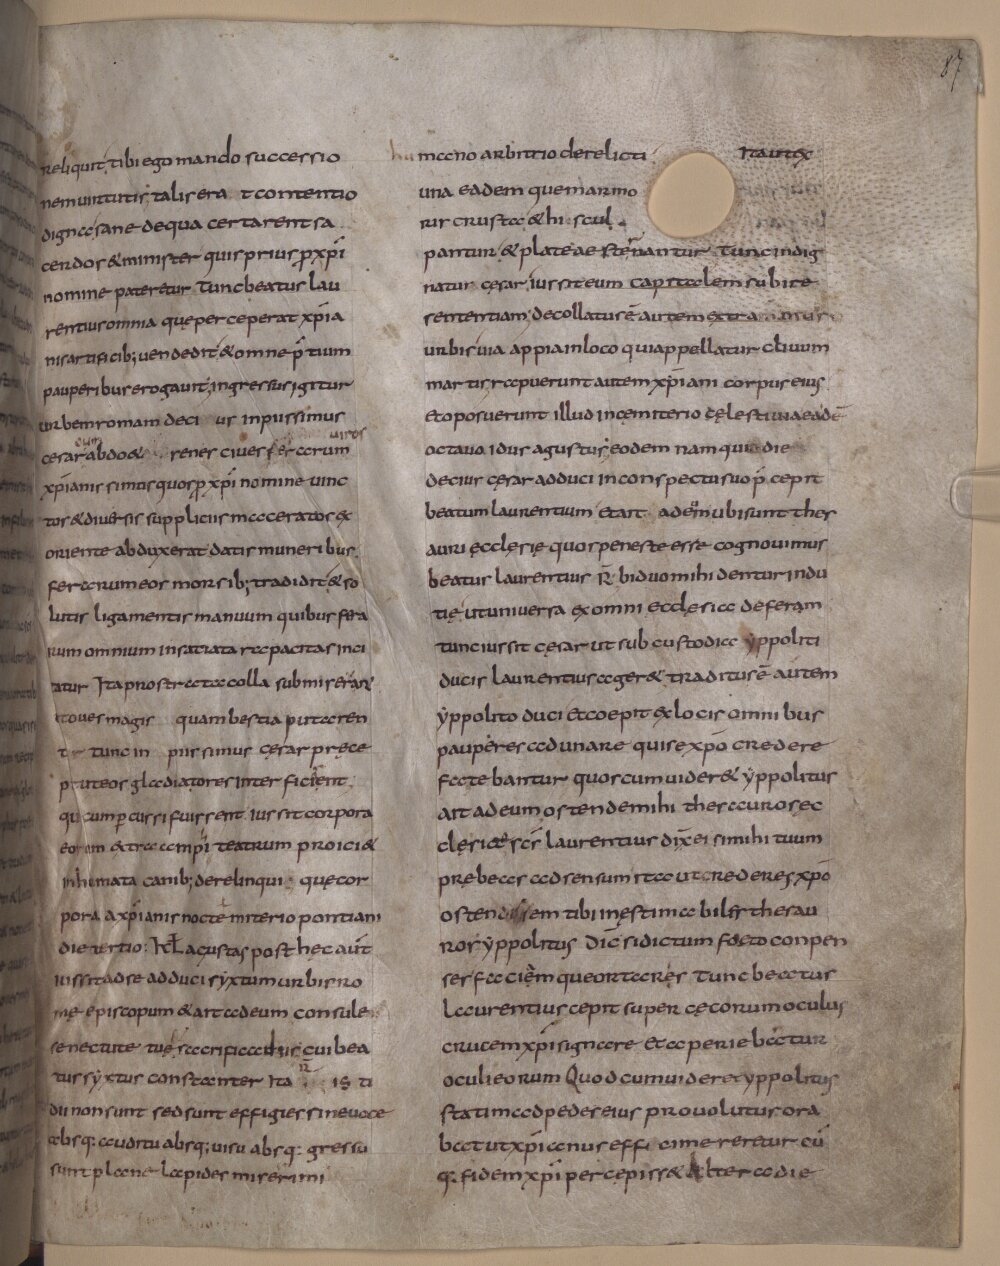 87
reliquit; tibi ego mando successio
nem uirtutis; talis era t contentio
digne sane de qua certarent sa
cerdos & minister quis prius p xp̄i
nomine pateretur Tunc beatus lau
rentius omnia que perceperat xp̄ia
nis artificib; uendedit & omne p̄tium
pauperibus erogauit; ingressus igitur
urbem romam deci us inpiissimus
uiros
cesar cum abdo & renes ciues fercorum
xp̄ianissimus quos p xp̄i nomine uinc
tos & diuersis suppliciis maceratos ex
oriente abduxerat datis muneribus
ferarum eos morsib; tradidit & so
lutis ligamentis manuum quibus fera
rum omnium insatiata rapacitas inci
tatur Ita prostrata colla submiserunt
ut oues magis quam bestia putaren
t tunc in piissimus cesar prece
p ut eos gladiatores inter ficient
qui cum p cussi fuissent. iussit corpora
eorum & tra ampi teatrum proici &
inhumata canib; derelinqui: que cor
pora a xp̄ianis nocte miterio pontiani
die tertio: kł agustas post hec aut̄
iussit ad se adduci syxtum urbis ro
me episcopum & ait ad eum consule
senectute tue sacrificad diis cui bea
tus syxtus constanter Ita is ti
dii non sunt sed sunt effigies sine uoce
absq; auditu absq; uisu absq: gressu
sunt plane lapides miserimi
humano arbitrio derelicti Itaut ex
una eadem que marmo
rir crusta & hi scul
pantur & plateae sternantur. Tunc indig
natur cesar, iussit eum capitalem subire
sententiam; decollatus ē autem extra muros
urbis uia appia in loco qui appellatur cliuum
martis rapuerunt autem xp̄iani corpus eius
Et oposuerunt illud in cemiterio celestina eadē
octauo idus agustus; eodem nam qui die
decius cesar adduci in conspectu suo p̄cepit
beatum laurentium & ait ad eum ubi sunt thes
auri ecclesie quos penes te esse cognouimus
beatus laurentius R̄ biduo mihi dentur indu
tie ut uniuersa ex omni ecclesia deferam
tunc iussit cesar ut sub custodia yppoliti
ducis laurentius ager& traditus ē autem
yppolito duci Et coepit ex locis omnibus
pauperes adunare qui se xp̄o credere
fatebantur quos cum uider& yppolitus
ait ad eum ostende mihi thesauros ec
clesie scs̄ laurentius dix̄ ei si mihi tuum
prebeas adsensum ita ut crederes xp̄o
ostendissem tibi inestimabiles thesau
ros yppolitus dic̄ si dictum facto conpen
ses faciam que ortares Tunc beatus
laurentius cepit super cecorum oculus
crucem xp̄i signare Et aperiebatur
oculi eorum Quod cum uideret yppolitus
statim ad pedes eius prouolutus ora
bat ut xp̄ianus effi cimereretur cū
q; fidem xp̄i percepiss& Alter a die